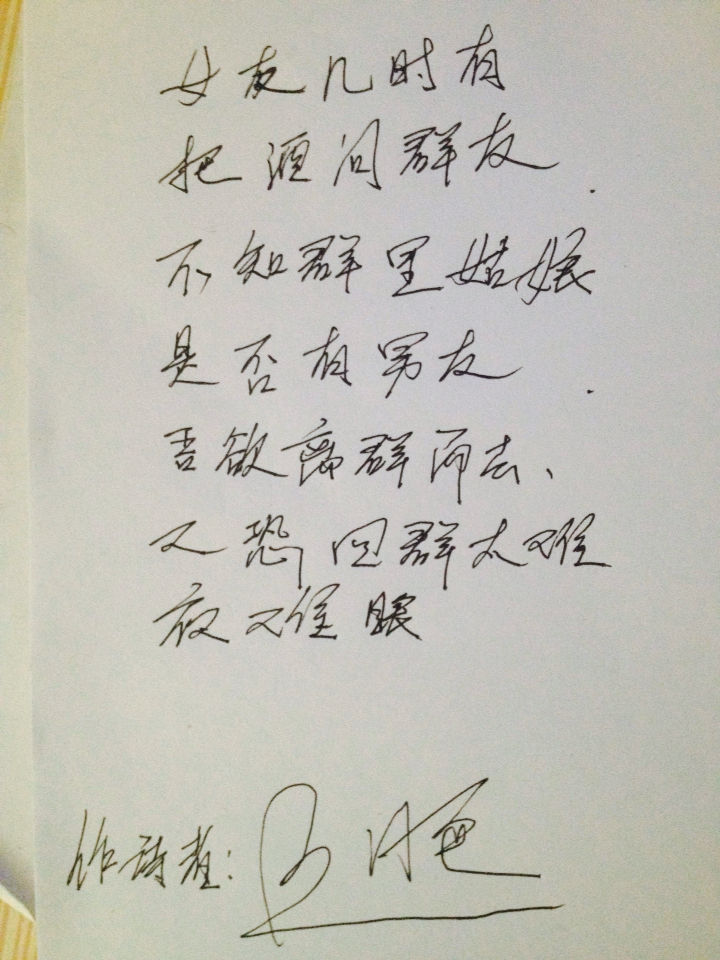 女友几时有
把酒问群友.
不知群里姑娘
是否有男友.
吾欲离群而去、
又恐回群太难
夜难眠
作诗者: